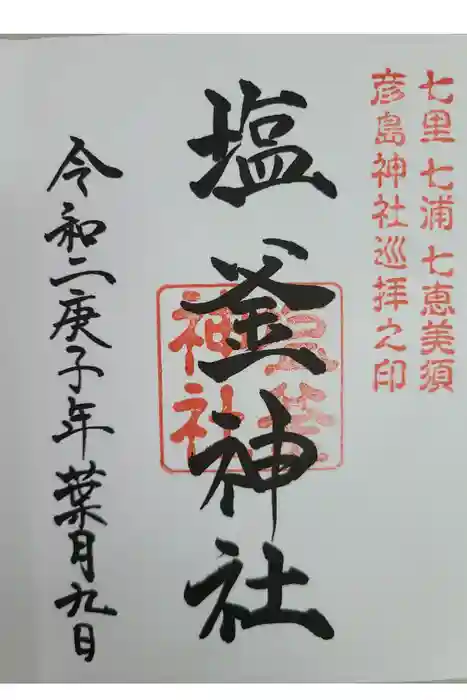 七里七浦七恵美須
彦島神社巡拝之印
塩釜神社
塩釜
神社
令和二庚子年葉月九日